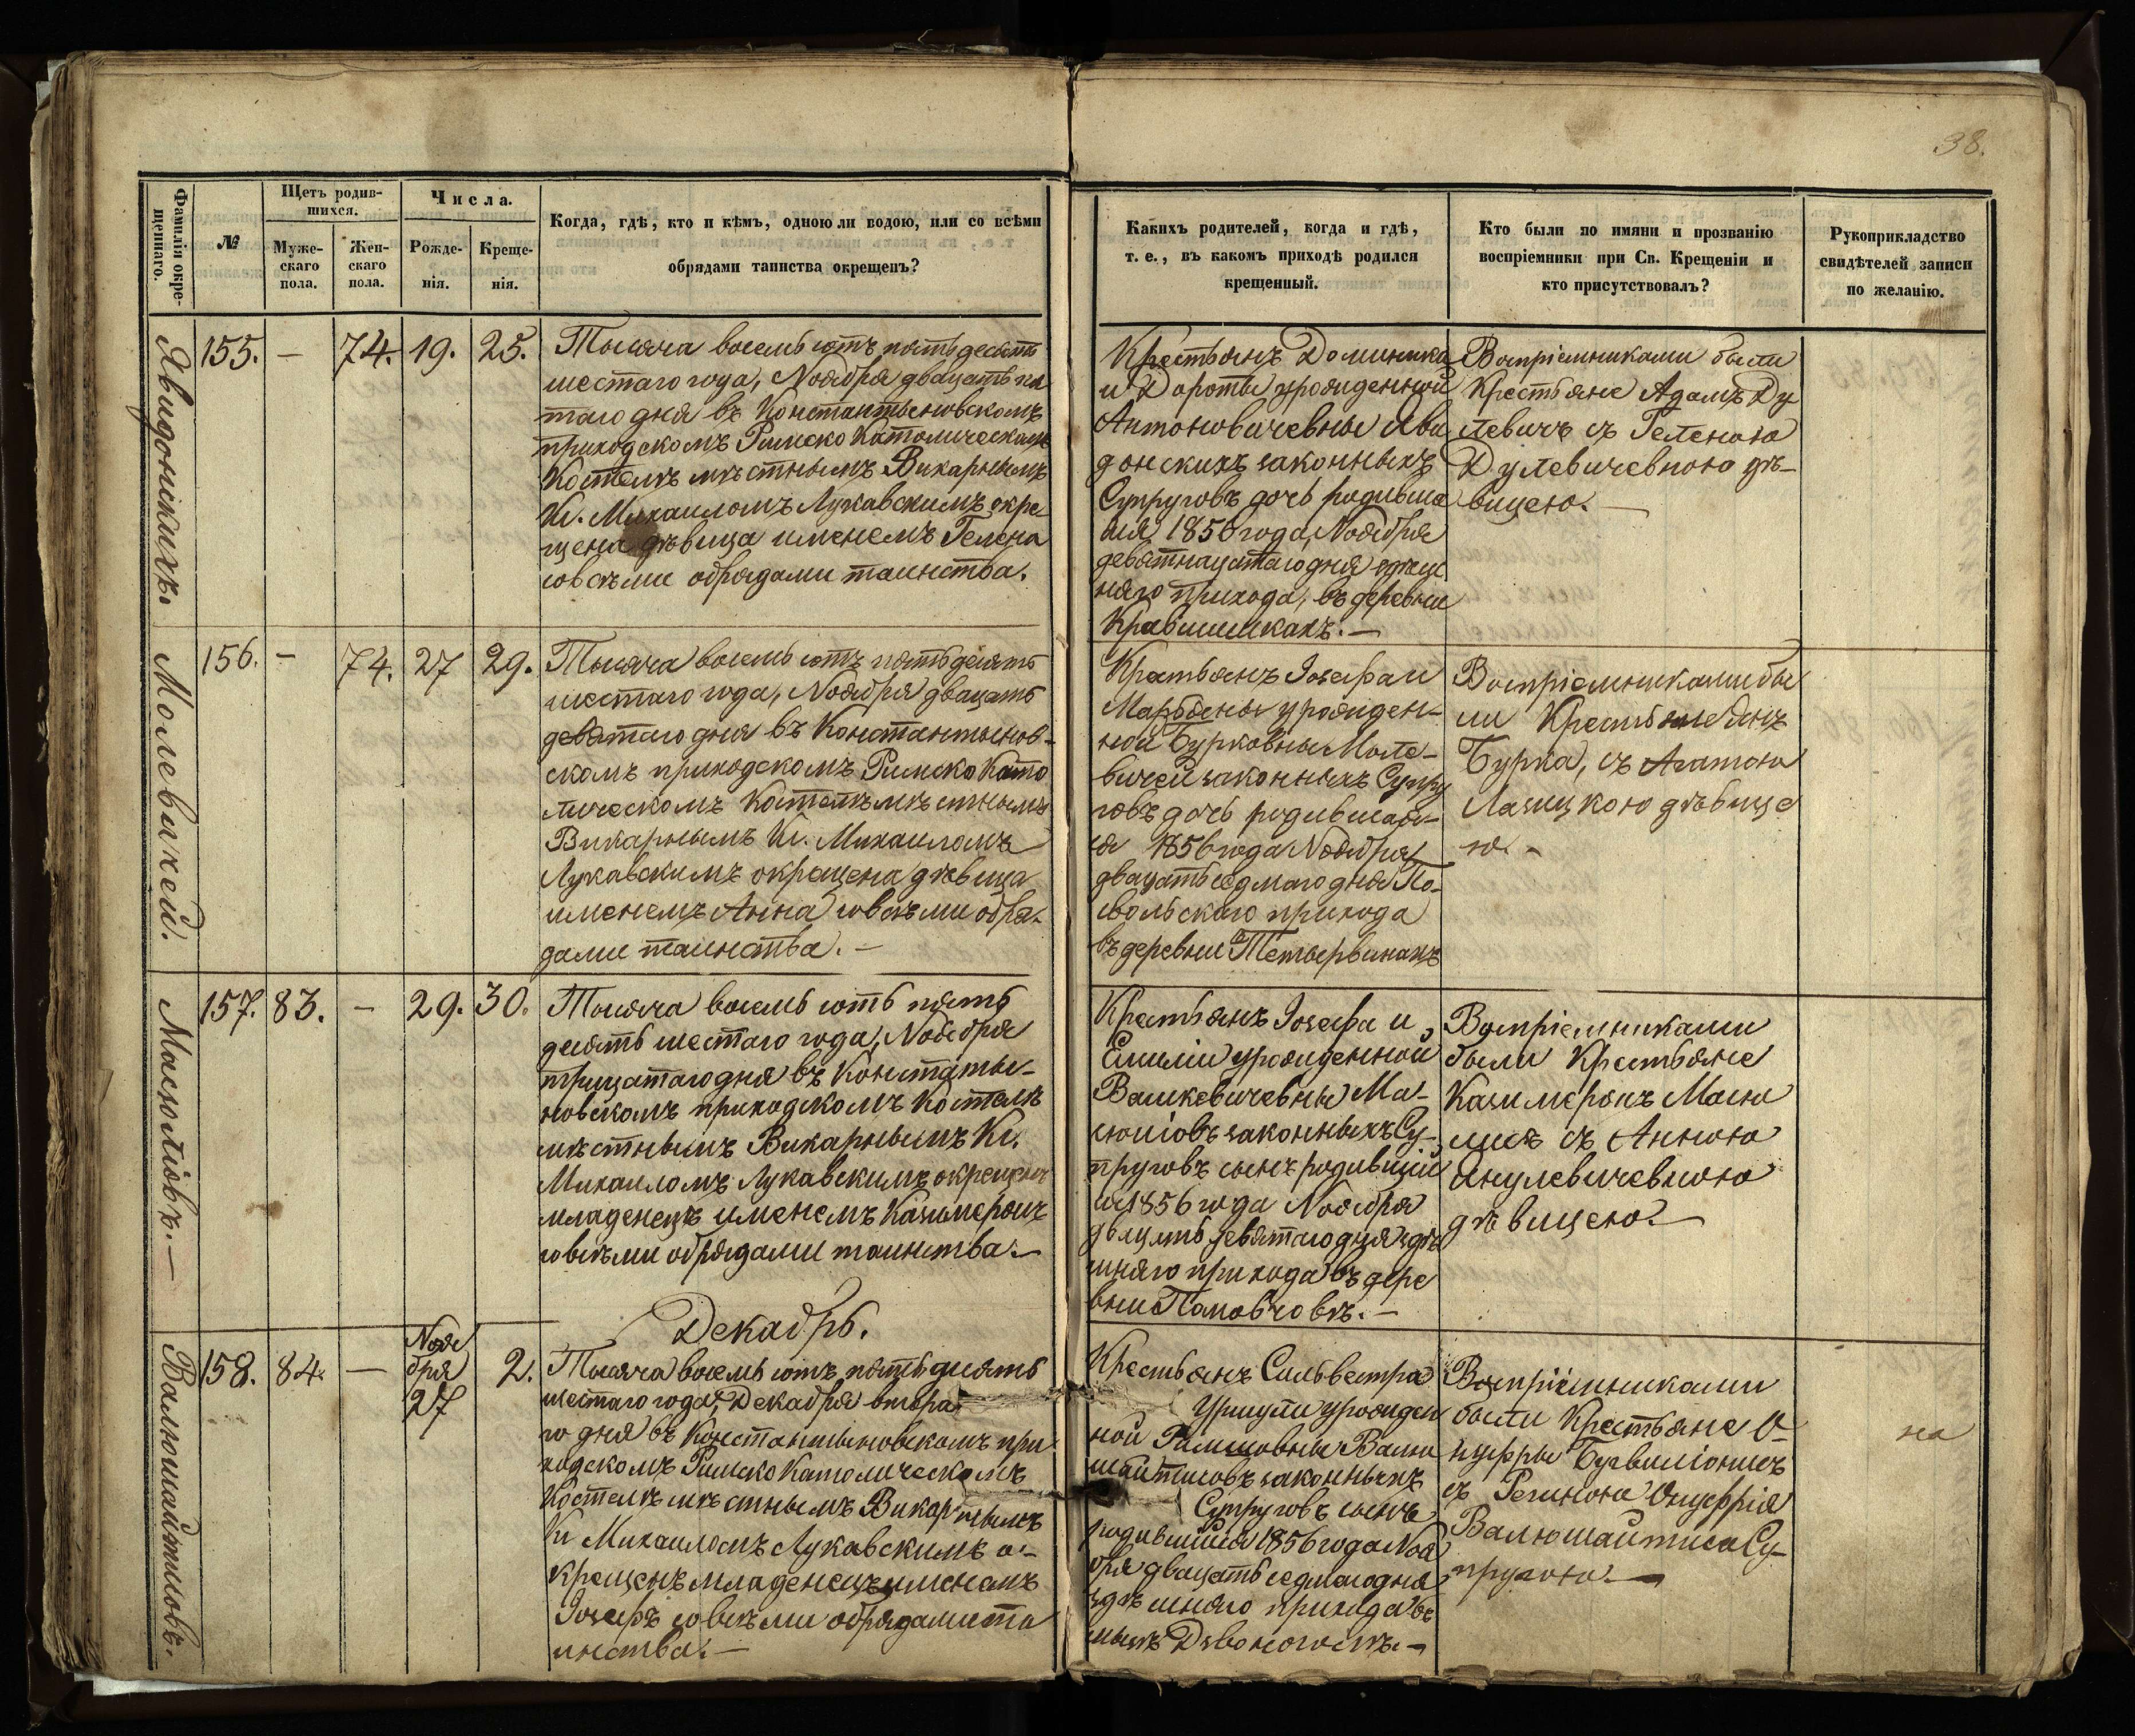 38.
Фамиліи окре-
щеннаго.
№
Щетъ родив-
шихся.
Муже-
скаго
пола.
Жен-
скаго
пола.
Числа.
Рожде-
нія.
Креще-
нія.
Когда, гдѣ, кто и кѣмъ, одною ли водою, или со всѣми
обрядами таинства окрещенъ?
Какихъ родителей, когда и гдѣ,
т. е., въ какомъ приходѣ родился
крещенный.
Кто были по имяни и прозванію
воспріемники при Св. Крещеніи и
кто присутствовалъ?
Рукоприкладство
свидѣтелей записи
по желанію.
Явидонскихъ.
155. — 74. 19. 25.
Тысяча восемь сотъ пятьдесятъ
шестаго года, Ноября двацать пя
таго дня въ Константыновскомъ
приходскомъ Римско Католическомъ
Костелѣ мѣстнымъ Викарнымъ
Кс. Михаиломъ Лукавскимъ окре
щена дѣвица именемъ Гелена
совсѣми обрядами таинства.
Крестьянъ Доминика
и Дороты урожденной
Антоновичевны Яви
донскихъ законныхъ
Супруговъ дочь родивша
яся 1856 года Ноября
девятнацатаго дня здѣш
няго прихода, въ деревни
Кравшишкахъ. —
Воспріемниками были
Крестьяне Адамъ Ду
левичъ съ Геленою
Дулевичевною дѣ—
вицею. —
Молевичей.
156. — 74. 27 29.
Тысяча восемь сотъ пятьдесятъ
шестаго года, Ноября двацать
девятаго дня въ Константынов-
скомъ приходскомъ Римско Като
лическомъ Костелѣ мѣстнымъ
Викарнымъ Кс. Михаиломъ
Лукавскимъ окрещена дѣвица
именемъ Анна совсѣми обря-
дами таинства. —
Крестьянъ Іозефа и
Марьяны урожден-
ной Бурковны Моле-
вичей законныхъ Супру
говъ дочь родившая-
ся 1856 года Ноября
двацать седмаго дня По-
вольскаго прихода
въ деревни
Воспріемниками бы
ли Крестьяне Янъ
Бурка, съ Агатою
Лазицкою дѣвице
ю. -
Масюлісвъ. —
157. 83. — 29. 30.
Тысяча восемь сотъ пять
десять шестаго года, Ноября
трицатаго дня въ Констаты-
новскомъ приходскомъ Костелѣ
мѣстнымъ Викарнымъ Кс.
Михаиломъ Лукавскимъ окрещенъ
младенецъ именемъ Казимеронъ
совсѣми обрядами таинства. —
Крестьянъ Іозефа и
Емиліи урожденной
Вашкевичевны Ма-
сюлісвъ законныхъ Су-
пруговъ сынъ родившій
ся 1856 года Ноября
двацать девятаго дня здѣ
шняго прихода въ дере
вни
Воспріемниками
были Крестьяне
Казимеронъ Масю
лисъ съ Анною
Янулевичевною
дѣвицею. —
Декабрь.
Валюшайтисовъ.
158. 84. — Ноя
бря
27 2.
Тысяча восемь сотъ пятьдесятъ
шестаго года, Декабря втора-
го дня въ Константыновскомъ при
ходскомъ Римско Католическомъ
Костелѣ мѣстнымъ Викарнымъ
Кс Михаиломъ Лукавскимъ о-
крещенъ младенецъ именемъ
Іозефъ совсѣми обрядами та
инства. —
Крестьянъ Сильвестра
Уршули урожден
ной Валю
шайтисовъ законныхъ
Супруговъ сынъ
родившійся 1856 года Ноя
бря двацать седмаго дня
здѣшняго прихода въ
Воспріемниками
были Крестьяне О-
нуфры
съ Региною Онуфрія
Валюшайтиса Су-
пругою. —
на